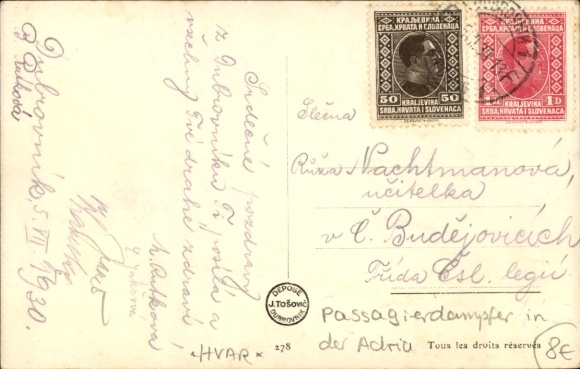 Dubrovník, 5. VII. 1930.
Srdečné pozdravy
z Dubrovníku Ti posílá a
všechny Tvé drahé zdraví
M. Rutková
КРАЉЕВИНА
СРБА, ХРВАТА И СЛОВЕНАЦА
50 50
KRALJEVINA
SRBA, HRVATA I SLOVENACA
КРАЉЕВИНА
СРБА, ХРВАТА И СЛОВЕНАЦА
1 D
KRALJEVINA
SRBA, HRVATA I SLOVENACA
Slečna
Růža Nachtmanová
učitelka
v Č. Budějovicích
Třída Čsl. legií
DEPOSÉ
J. TOŠOVIĆ
DUBROVNIK
Passagierdampfer in
der Adria
"HVAR"
278
Tous les droits réservés
8€